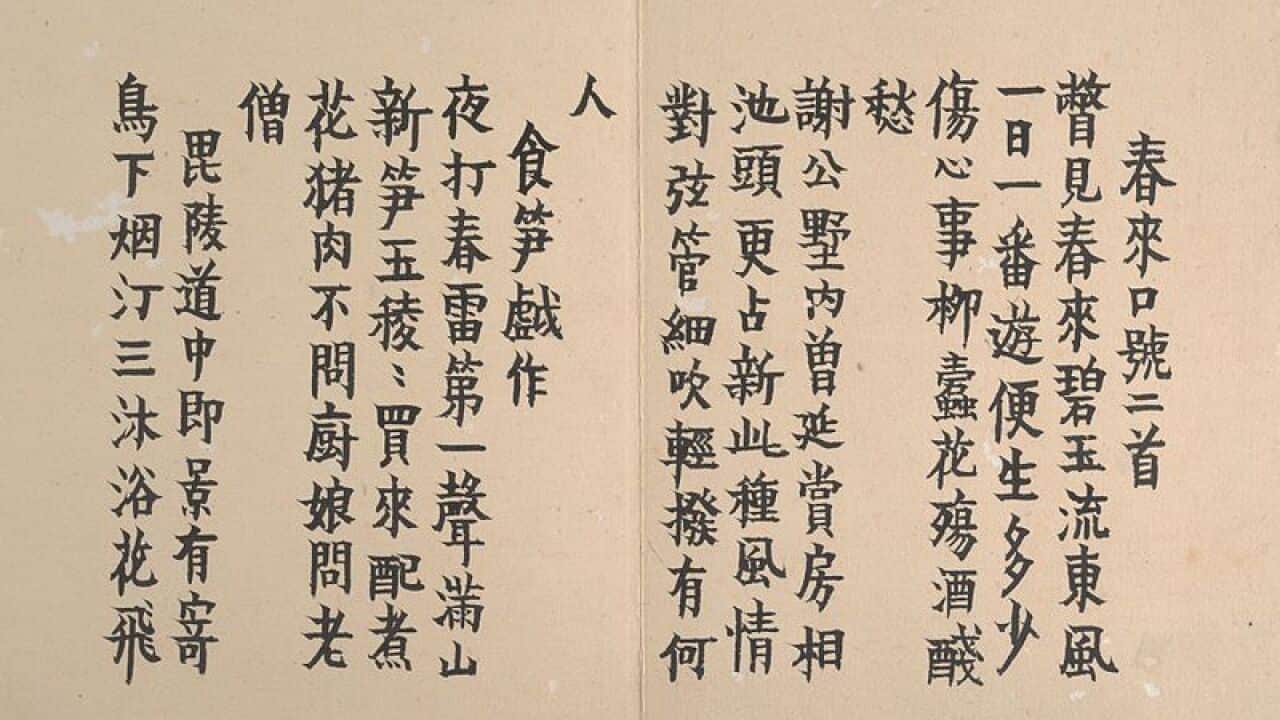 春來口號二首
瞥見春來碧玉流東風
一日一番遊便生多少
傷心事柳蠹花殤酒醆
愁
謝公墅内曾延賞房相
池頭更占新此種風情
對弦管細吹輕撥有何
人
食笋戲作
夜打春雷第一聲滿山
新笋玉稜〻買來配煮
花猪肉不問廚娘問老
僧
毘陵道中即景有寄
鳥下烟汀三沐浴花飛